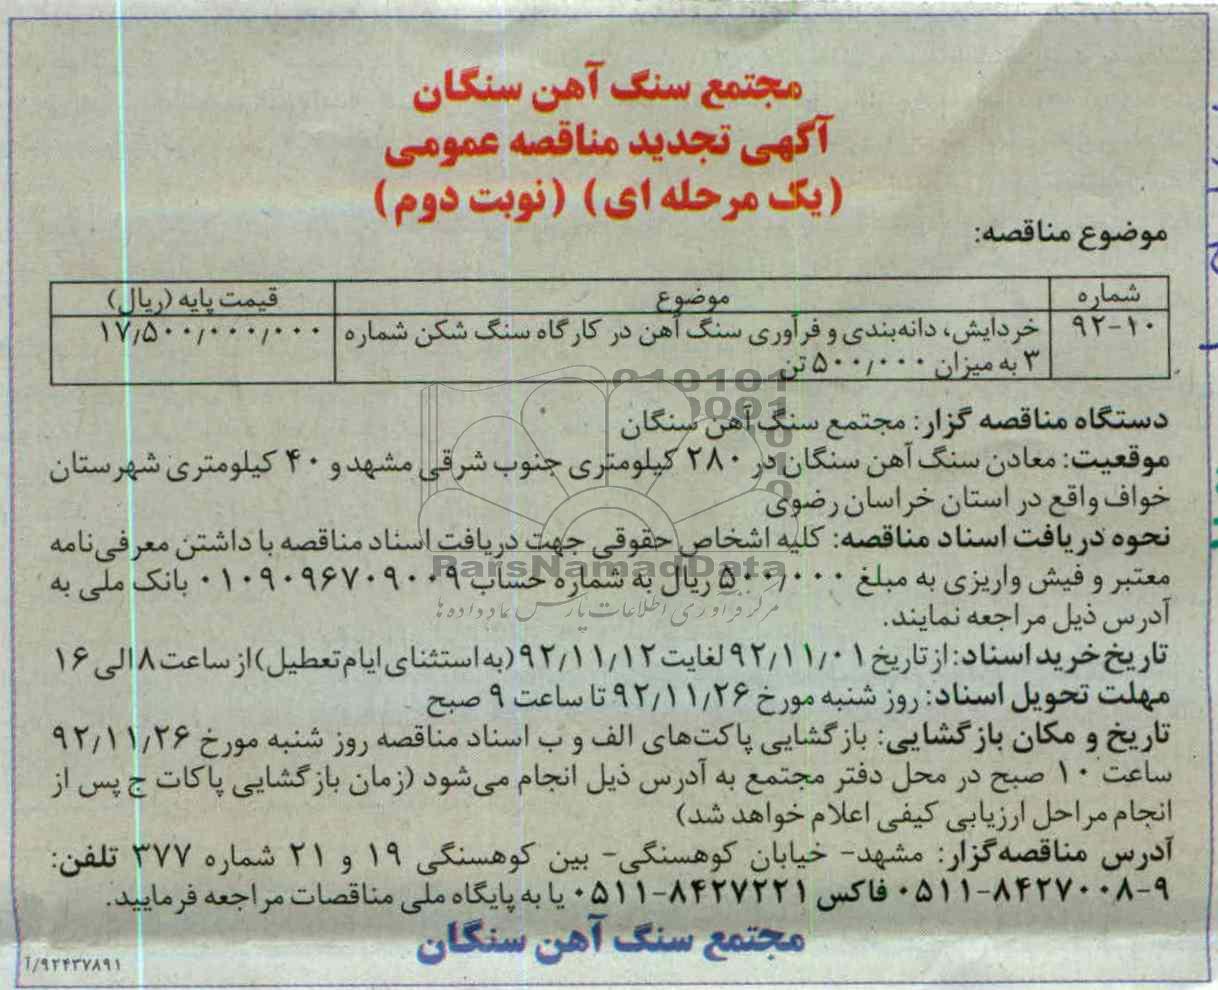 مجتمع سنگ آهن سنگان
آگهی تجدید مناقصه عمومی
(یک مرحله ای) (نوبت دوم)
موضوع مناقصه:
شماره موضوع قیمت پایه (ریال)
۹۲-۱۰ خردایش، دانه‌بندی و فرآوری سنگ آهن در کارگاه سنگ شکن شماره ۱۷٫۵۰۰٫۰۰۰٫۰۰۰
۳ به میزان ۵۰۰٫۰۰۰ تن
دستگاه مناقصه گزار: مجتمع سنگ آهن سنگان
موقعیت: معادن سنگ آهن سنگان در ۲۸۰ کیلومتری جنوب شرقی مشهد و ۴۰ کیلومتری شهرستان
خواف واقع در استان خراسان رضوی
نحوه دریافت اسناد مناقصه: کلیه اشخاص حقوقی جهت دریافت اسناد مناقصه با داشتن معرفی‌نامه
معتبر و فیش واریزی به مبلغ ۵۰۰٫۰۰۰ ریال به شماره حساب ۰۱۰۹۰۹۶۷۰۹۰۰۹ بانک ملی به
آدرس ذیل مراجعه نمایند.
تاریخ خرید اسناد: از تاریخ ۹۲/۱۱/۰۱ لغایت ۹۲/۱۱/۱۲ (به استثنای ایام تعطیل) از ساعت ۸ الی ۱۶
مهلت تحویل اسناد: روز شنبه مورخ ۹۲/۱۱/۲۶ تا ساعت ۹ صبح
تاریخ و مکان بازگشایی: بازگشایی پاکت‌های الف و ب اسناد مناقصه روز شنبه مورخ ۹۲/۱۱/۲۶
ساعت ۱۰ صبح در محل دفتر مجتمع به آدرس ذیل انجام می‌شود (زمان بازگشایی پاکات ج پس از
انجام مراحل ارزیابی کیفی اعلام خواهد شد)
آدرس مناقصه‌گزار: مشهد- خیابان کوهسنگی- بین کوهسنگی ۱۹ و ۲۱ شماره ۳۷۷ تلفن:
۰۵۱۱-۸۴۲۷۰۰۸-۹ فاکس ۰۵۱۱-۸۴۲۷۲۲۱ یا به پایگاه ملی مناقصات مراجعه فرمایید.
مجتمع سنگ آهن سنگان
۹۲۴۳۷۸۹۱/آ
ParsNamadData
مرکز فرآوری اطلاعات پارس نماد داده ها